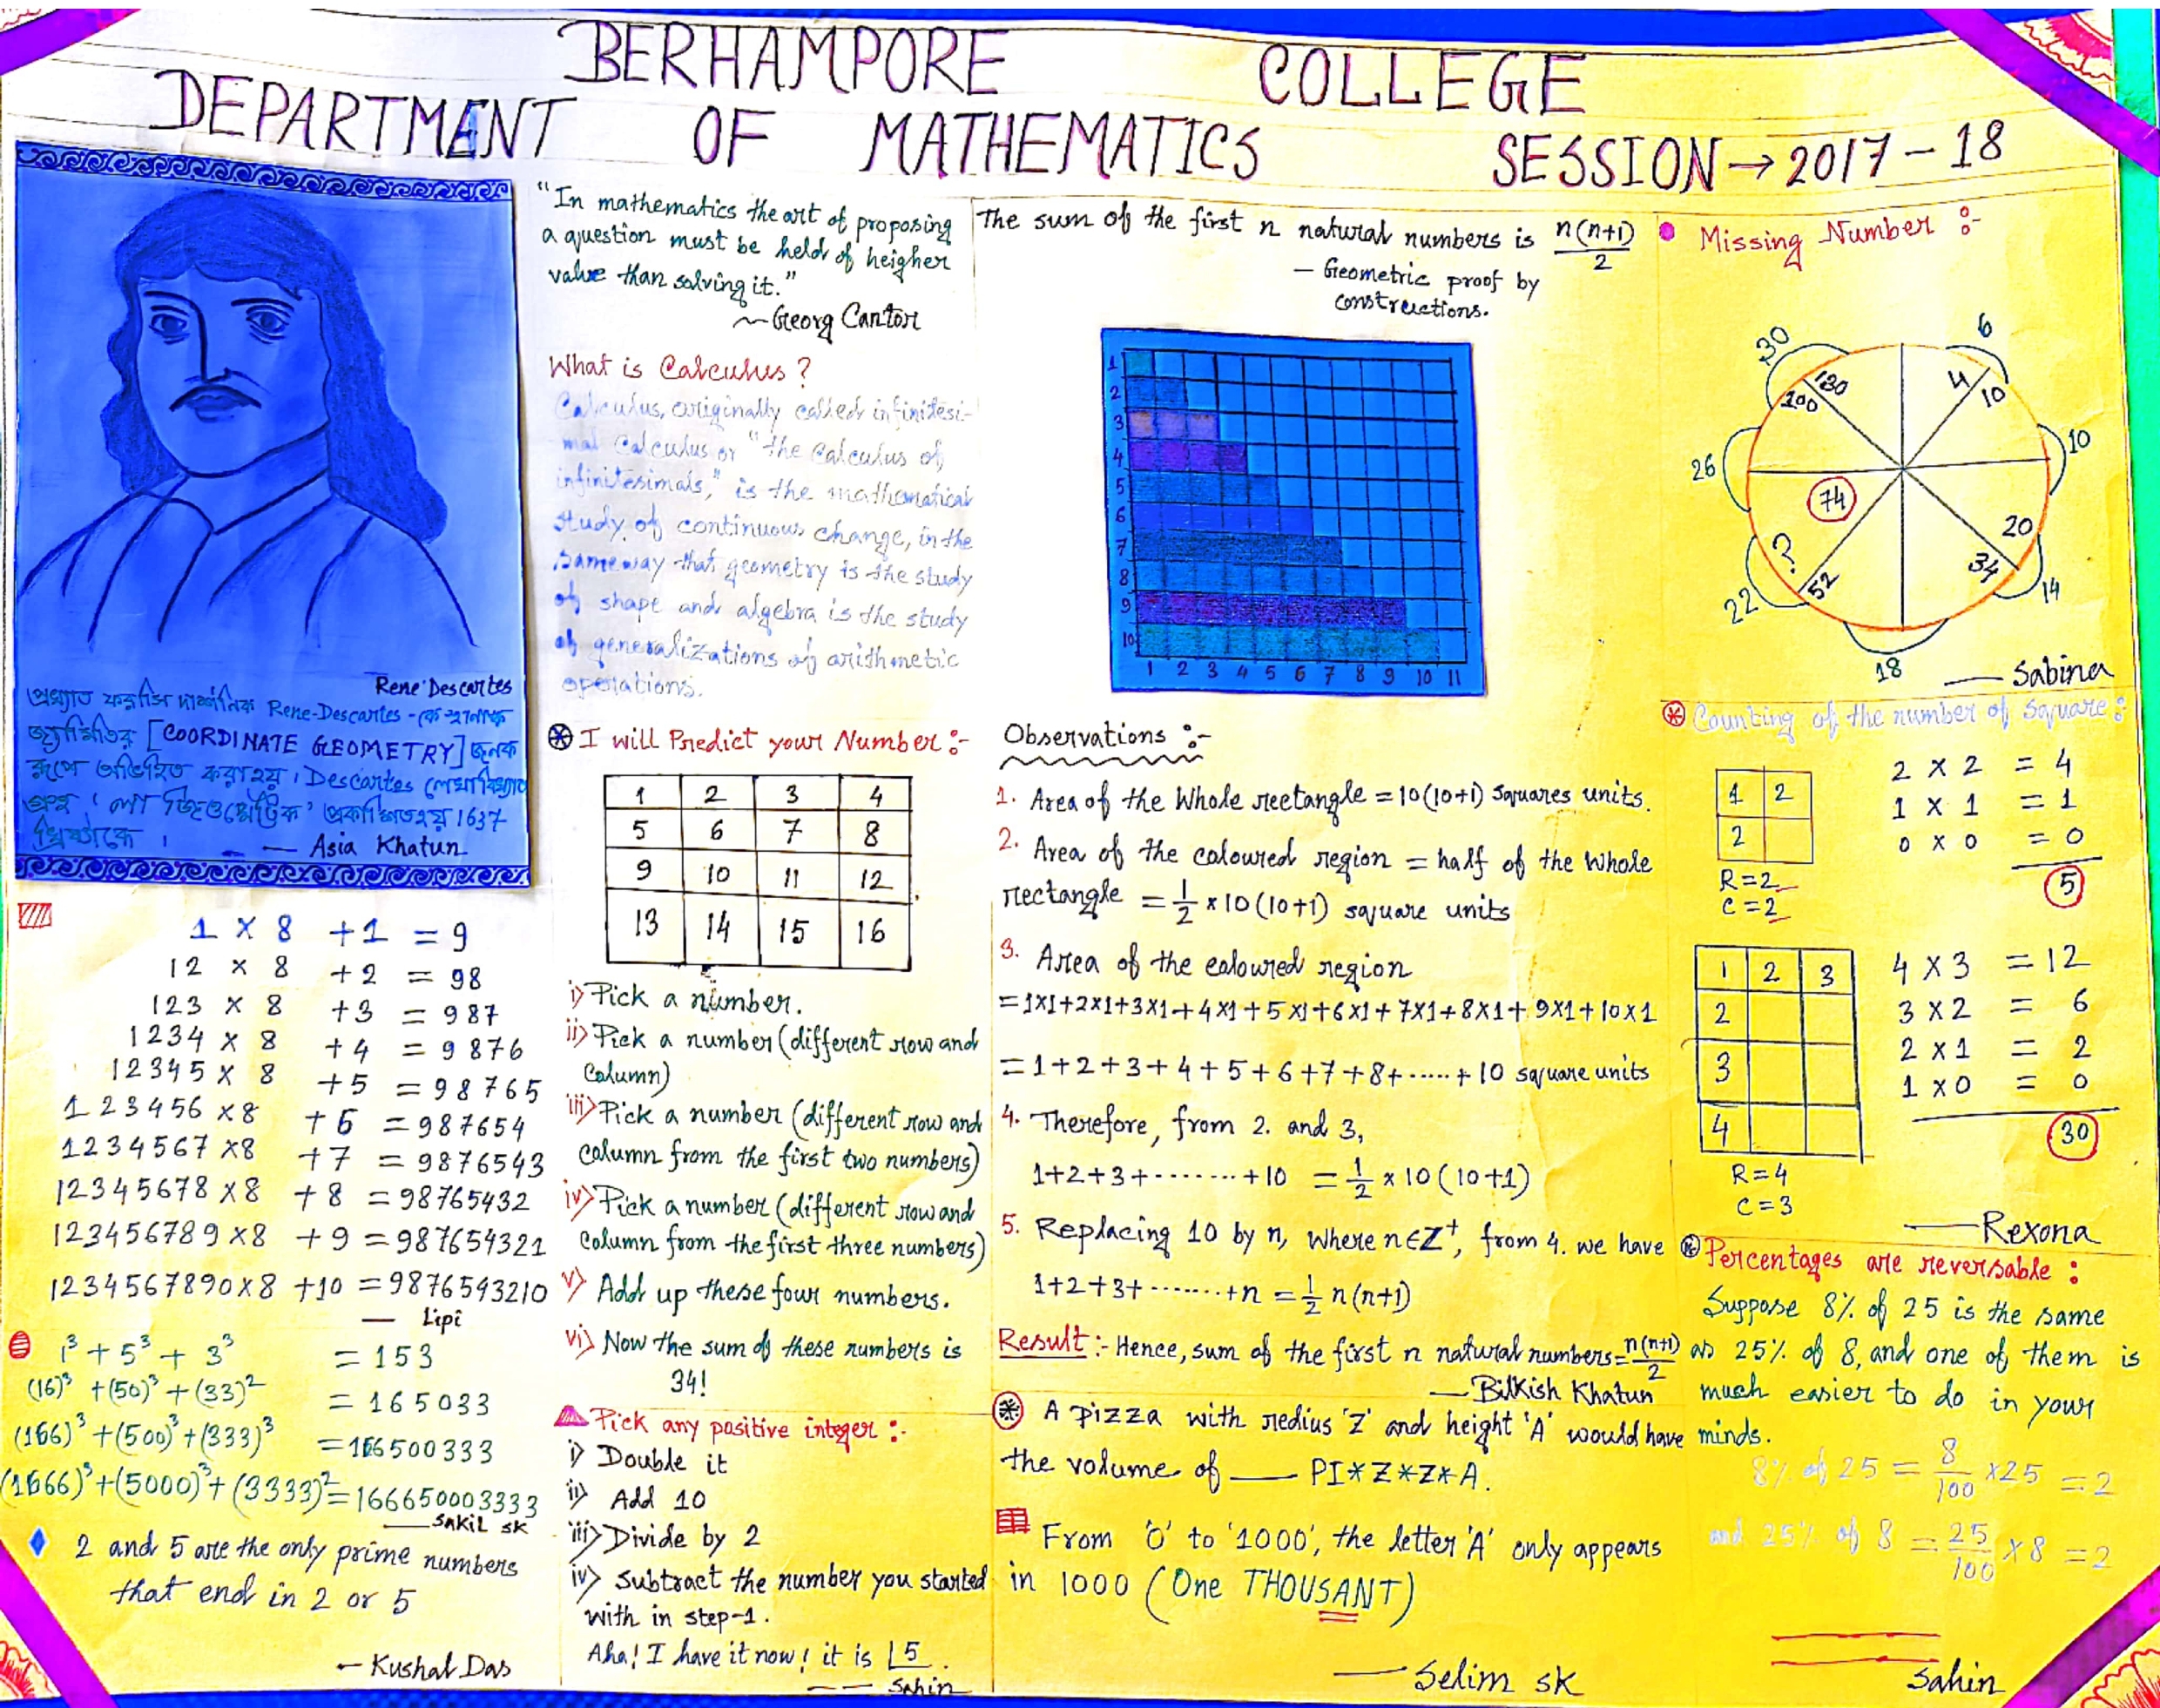 BERHAMPORE COLLEGE
DEPARTMENT OF MATHEMATICS SESSION→2017-18
Rene Descartes
প্রখ্যাত ফরাসি দার্শনিক Rene-Descartes-কে স্থানাঙ্ক
জ্যামিতির [COORDINATE GEOMETRY] জনক
রূপে অভিহিত করা হয়। Descartes লেখা বিখ্যাত
গ্রন্থ 'লা জিওমেট্রিক' প্রকাশিত হয় 1637
খ্রিষ্টাব্দে।
— Asia Khatun
1 × 8 +1 = 9
12 × 8 +2 = 98
123 × 8 +3 = 987
1234 × 8 +4 = 9876
12345 × 8 +5 = 98765
123456 ×8 +6 = 987654
1234567 ×8 +7 = 9876543
12345678 ×8 +8 = 98765432
123456789 ×8 +9 = 987654321
1234567890×8 +10 = 9876543210
— Lipi
1³ + 5³ + 3³ = 153
(16)³ +(50)³ + (33)² = 165033
(166)³ +(500)³ +(333)³ =166500333
(1666)³+(5000)³+ (3333)²=166650003333
— Sakil sk
2 and 5 are the only prime numbers
that end in 2 or 5
— Kushal Das
"In mathematics the art of proposing
a question must be held of heigher
value than solving it."
~ Georg Cantor
What is Calculus?
Calculus, originally called infinitesi-
mal Calculus or "the Calculus of
infinitesimals," is the mathematical
study of continuous change, in the
sameway that geometry is the study
of shape and algebra is the study
of generalizations of arithmetic
operations.
I will Predict your Number :-
1 2 3 4
5 6 7 8
9 10 11 12
13 14 15 16
i> Pick a number.
ii> Pick a number (different row and
Column)
iii> Pick a number (different row and
column from the first two numbers)
iv> Pick a number (different row and
Column from the first three numbers)
v> Add up these four numbers.
vi> Now the sum of these numbers is
34!
Pick any positive integer :-
i> Double it
ii> Add 10
iii> Divide by 2
iv> Subtract the number you started
with in step-1.
Aha! I have it now! it is 5.
— Sahin
The sum of the first n natural numbers is n(n+1)/2
— Geometric proof by
constructions.
1
2
3
4
5
6
7
8
9
10
1 2 3 4 5 6 7 8 9 10 11
Observations :-
1. Area of the Whole rectangle = 10(10+1) Squares units.
2. Area of the coloured region = half of the Whole
rectangle = 1/2 × 10(10+1) square units
3. Area of the coloured region
= 1×1+2×1+3×1+4×1+5×1+6×1+7×1+8×1+9×1+10×1
= 1+2+3+4+5+6+7+8+.....+10 square units
4. Therefore, from 2. and 3,
1+2+3+........+10 = 1/2 × 10(10+1)
5. Replacing 10 by n, where n∈Z⁺, from 4. we have
1+2+3+.......+n = 1/2 n(n+1)
Result :- Hence, sum of the first n natural numbers= n(n+1)/2
— Bilkish Khatun
A pizza with redius 'Z' and height 'A' would have
the volume of — PI*Z*Z*A.
From '0' to '1000', the letter 'A' only appears
in 1000 (One THOUSANT)
— Selim sk
Missing Number :-
30 6
130 4
100 10
26 10
74
20
? 34
52
22 14
18
— Sabina
Counting of the number of Square :
1 2
2
R=2
C=2
2 × 2 = 4
1 × 1 = 1
0 × 0 = 0
5
1 2 3
2
3
4
R=4
C=3
4 × 3 = 12
3 × 2 = 6
2 × 1 = 2
1 × 0 = 0
30
— Rexona
Percentages are reversable :
Suppose 8% of 25 is the same
as 25% of 8, and one of them is
much easier to do in your
minds.
8% of 25 = 8/100 ×25 = 2
and 25% of 8 = 25/100 ×8 = 2
Sahin